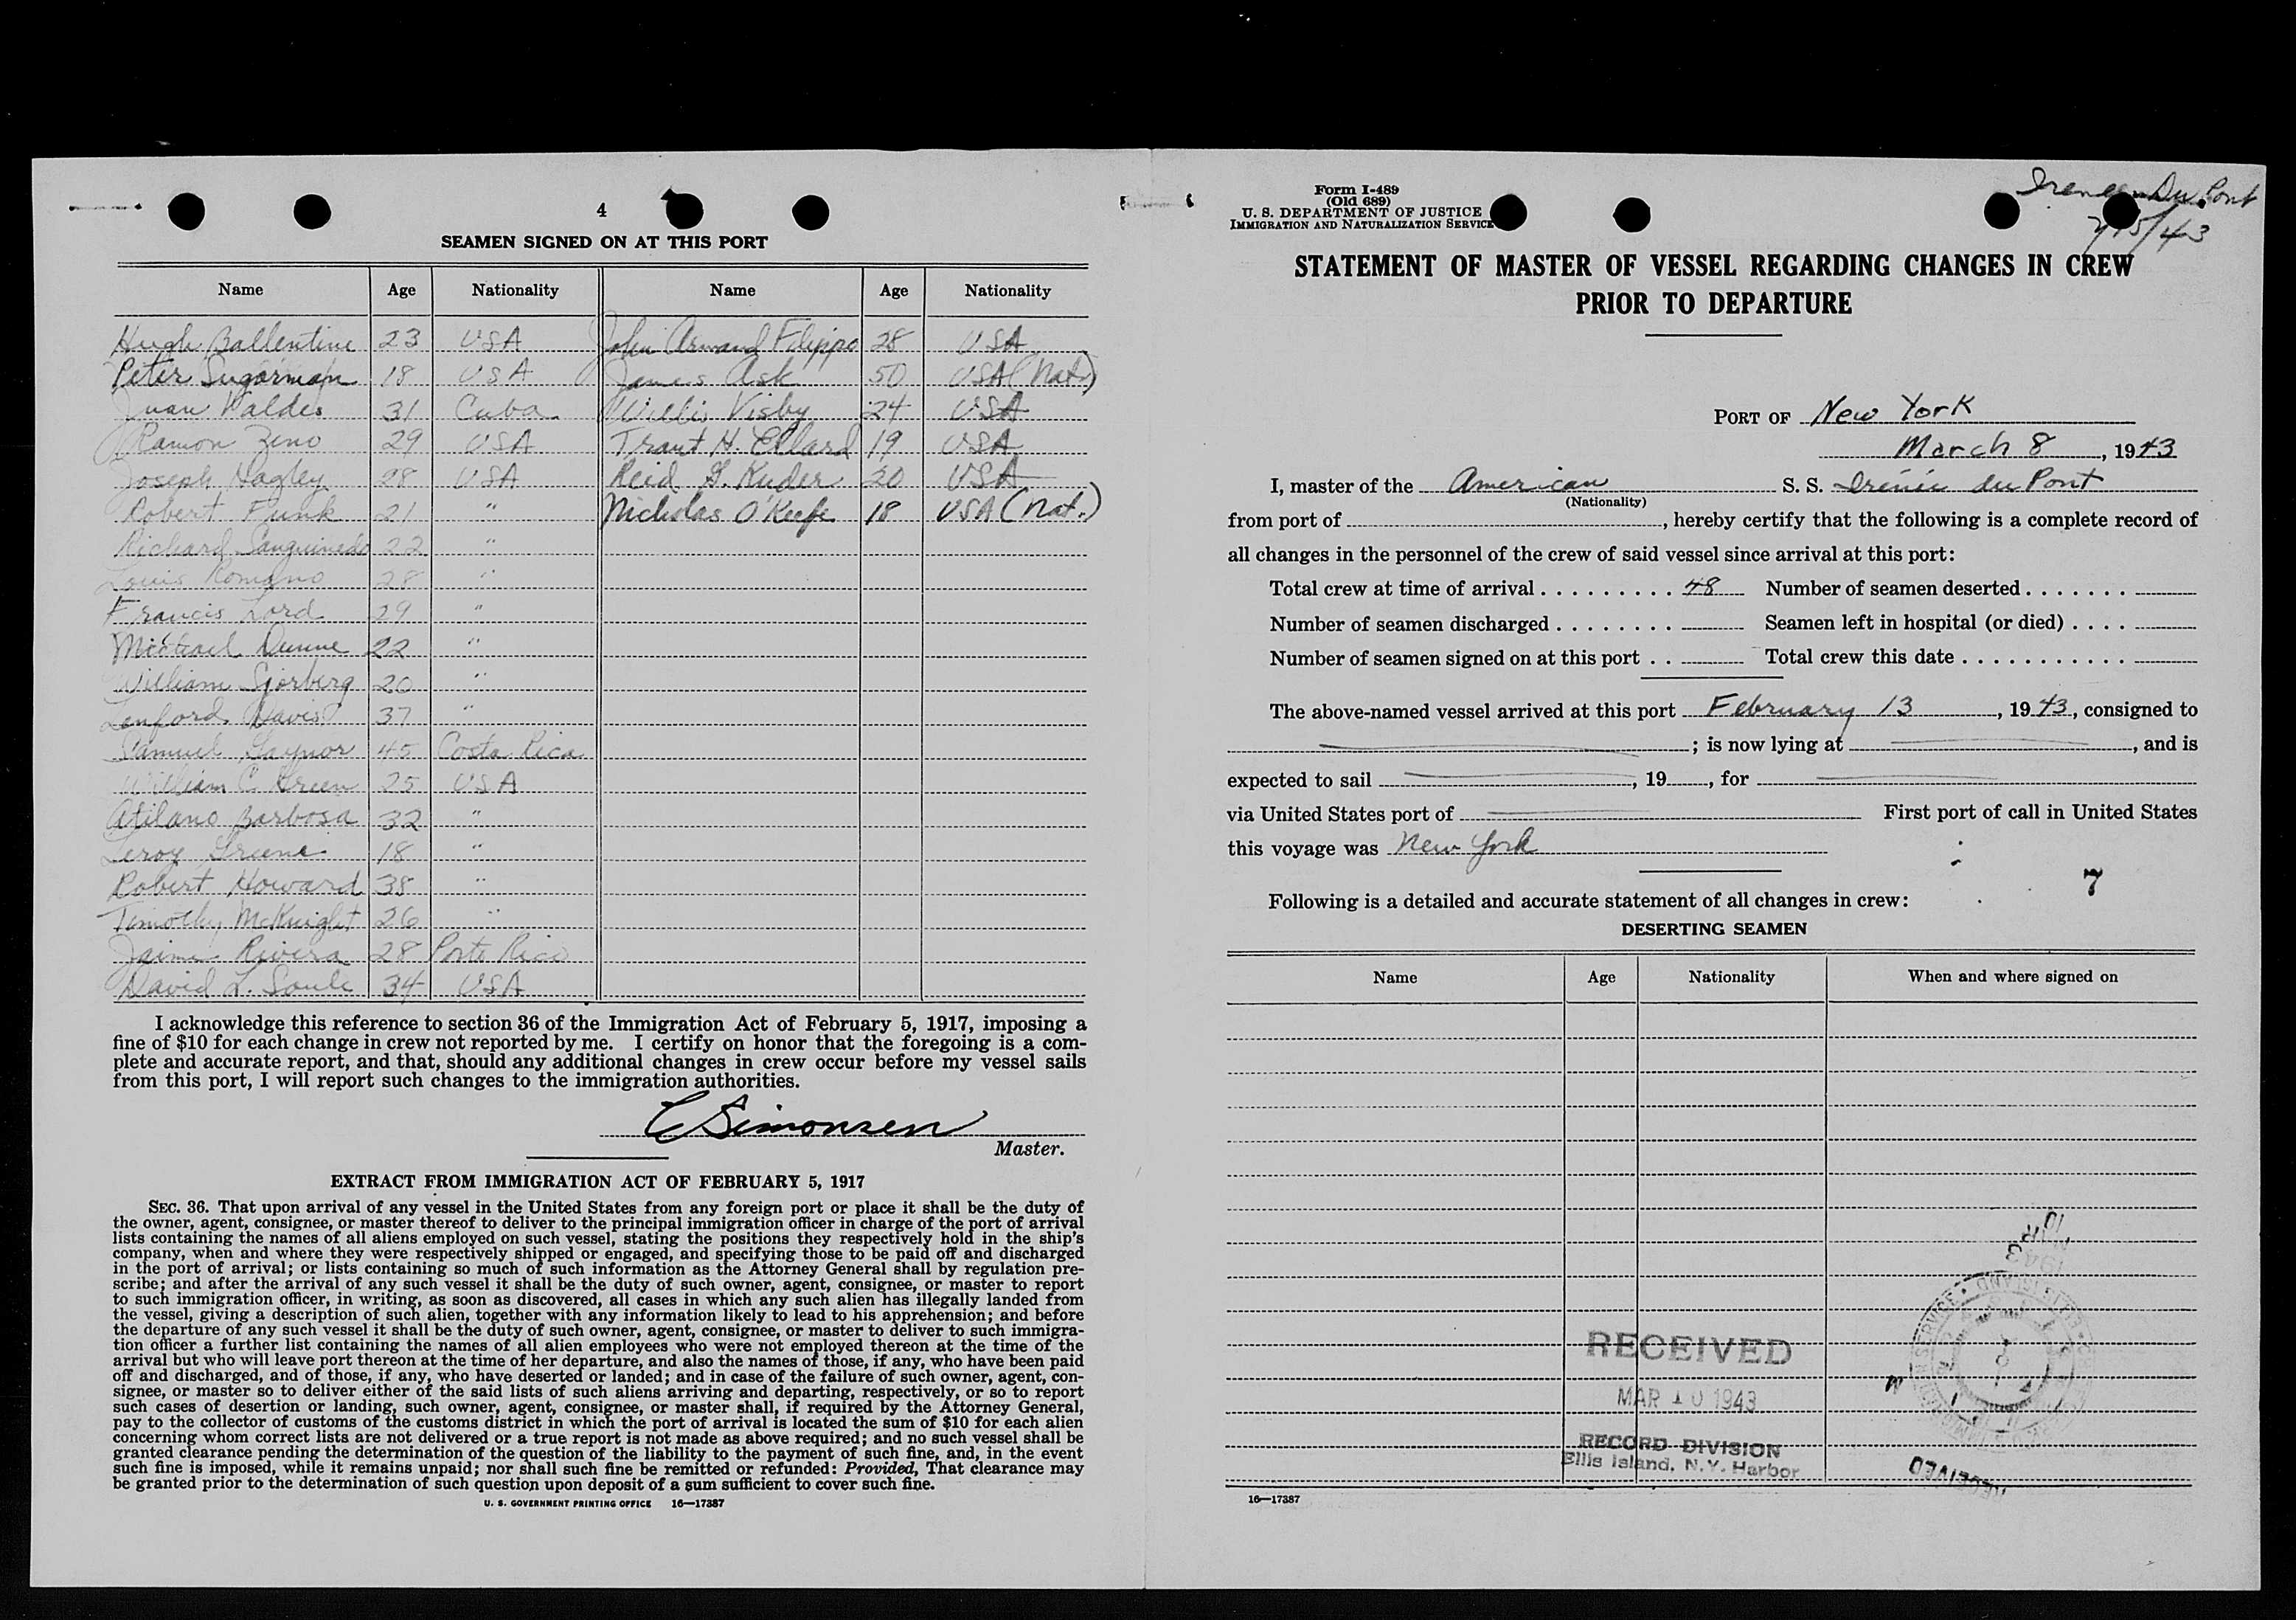 4
SEAMEN SIGNED ON AT THIS PORT
Name Age Nationality Name Age Nationality
Hugh Ballentine 23 USA John Armand Filippo 28 USA
Peter Sugarman 18 USA James Ask 50 USA (Nat.)
Juan Valdes 31 Cuba Willis Visby 24 USA
Ramon Zeno 29 USA Traut H. Ellard 19 USA
Joseph Hagley 28 USA Reid G. Kuder 20 USA
Robert Funk 21 " Nicholas O'Keefe 18 USA (Nat.)
Richard 22 "
Louis Romano 28 "
Francis Lord 29 "
Michael Dunne 22 "
William Sjorberg 20 "
Lenford Davis 37 "
Samuel Gaynor 45 Costa Rica
William C. Green 25 USA
Atilano Barbosa 32 "
Leroy Greene 18 "
Robert Howard 38 "
Timothy McKnight 26 "
Jaime Rivera 28 Porto Rico
David L. Soule 34 USA
I acknowledge this reference to section 36 of the Immigration Act of February 5, 1917, imposing a
fine of $10 for each change in crew not reported by me. I certify on honor that the foregoing is a com-
plete and accurate report, and that, should any additional changes in crew occur before my vessel sails
from this port, I will report such changes to the immigration authorities.
C Simonsen
Master.
EXTRACT FROM IMMIGRATION ACT OF FEBRUARY 5, 1917
SEC. 36. That upon arrival of any vessel in the United States from any foreign port or place it shall be the duty of
the owner, agent, consignee, or master thereof to deliver to the principal immigration officer in charge of the port of arrival
lists containing the names of all aliens employed on such vessel, stating the positions they respectively hold in the ship's
company, when and where they were respectively shipped or engaged, and specifying those to be paid off and discharged
in the port of arrival; or lists containing so much of such information as the Attorney General shall by regulation pre-
scribe; and after the arrival of any such vessel it shall be the duty of such owner, agent, consignee, or master to report
to such immigration officer, in writing, as soon as discovered, all cases in which any such alien has illegally landed from
the vessel, giving a description of such alien, together with any information likely to lead to his apprehension; and before
the departure of any such vessel it shall be the duty of such owner, agent, consignee, or master to deliver to such immigra-
tion officer a further list containing the names of all alien employees who were not employed thereon at the time of the
arrival but who will leave port thereon at the time of her departure, and also the names of those, if any, who have been paid
off and discharged, and of those, if any, who have deserted or landed; and in case of the failure of such owner, agent, con-
signee, or master so to deliver either of the said lists of such aliens arriving and departing, respectively, or so to report
such cases of desertion or landing, such owner, agent, consignee, or master shall, if required by the Attorney General,
pay to the collector of customs of the customs district in which the port of arrival is located the sum of $10 for each alien
concerning whom correct lists are not delivered or a true report is not made as above required; and no such vessel shall be
granted clearance pending the determination of the question of the liability to the payment of such fine, and, in the event
such fine is imposed, while it remains unpaid; nor shall such fine be remitted or refunded: Provided, That clearance may
be granted prior to the determination of such question upon deposit of a sum sufficient to cover such fine.
U. S. GOVERNMENT PRINTING OFFICE 16—17387
Form I-489
(Old 689)
U. S. DEPARTMENT OF JUSTICE
IMMIGRATION AND NATURALIZATION SERVICE
Irenee Du Pont
STATEMENT OF MASTER OF VESSEL REGARDING CHANGES IN CREW
PRIOR TO DEPARTURE
PORT OF New York
March 8, 1943
I, master of the American S. S. Irénée du Pont
(Nationality)
from port of , hereby certify that the following is a complete record of
all changes in the personnel of the crew of said vessel since arrival at this port:
Total crew at time of arrival 48 Number of seamen deserted
Number of seamen discharged Seamen left in hospital (or died)
Number of seamen signed on at this port Total crew this date
The above-named vessel arrived at this port February 13, 1943, consigned to
; is now lying at , and is
expected to sail , 19 , for
via United States port of First port of call in United States
this voyage was New York
7
Following is a detailed and accurate statement of all changes in crew:
DESERTING SEAMEN
Name Age Nationality When and where signed on
RECEIVED
MAR 10 1943
RECORD DIVISION
Ellis Island, N.Y. Harbor
RECEIVED
16—17387